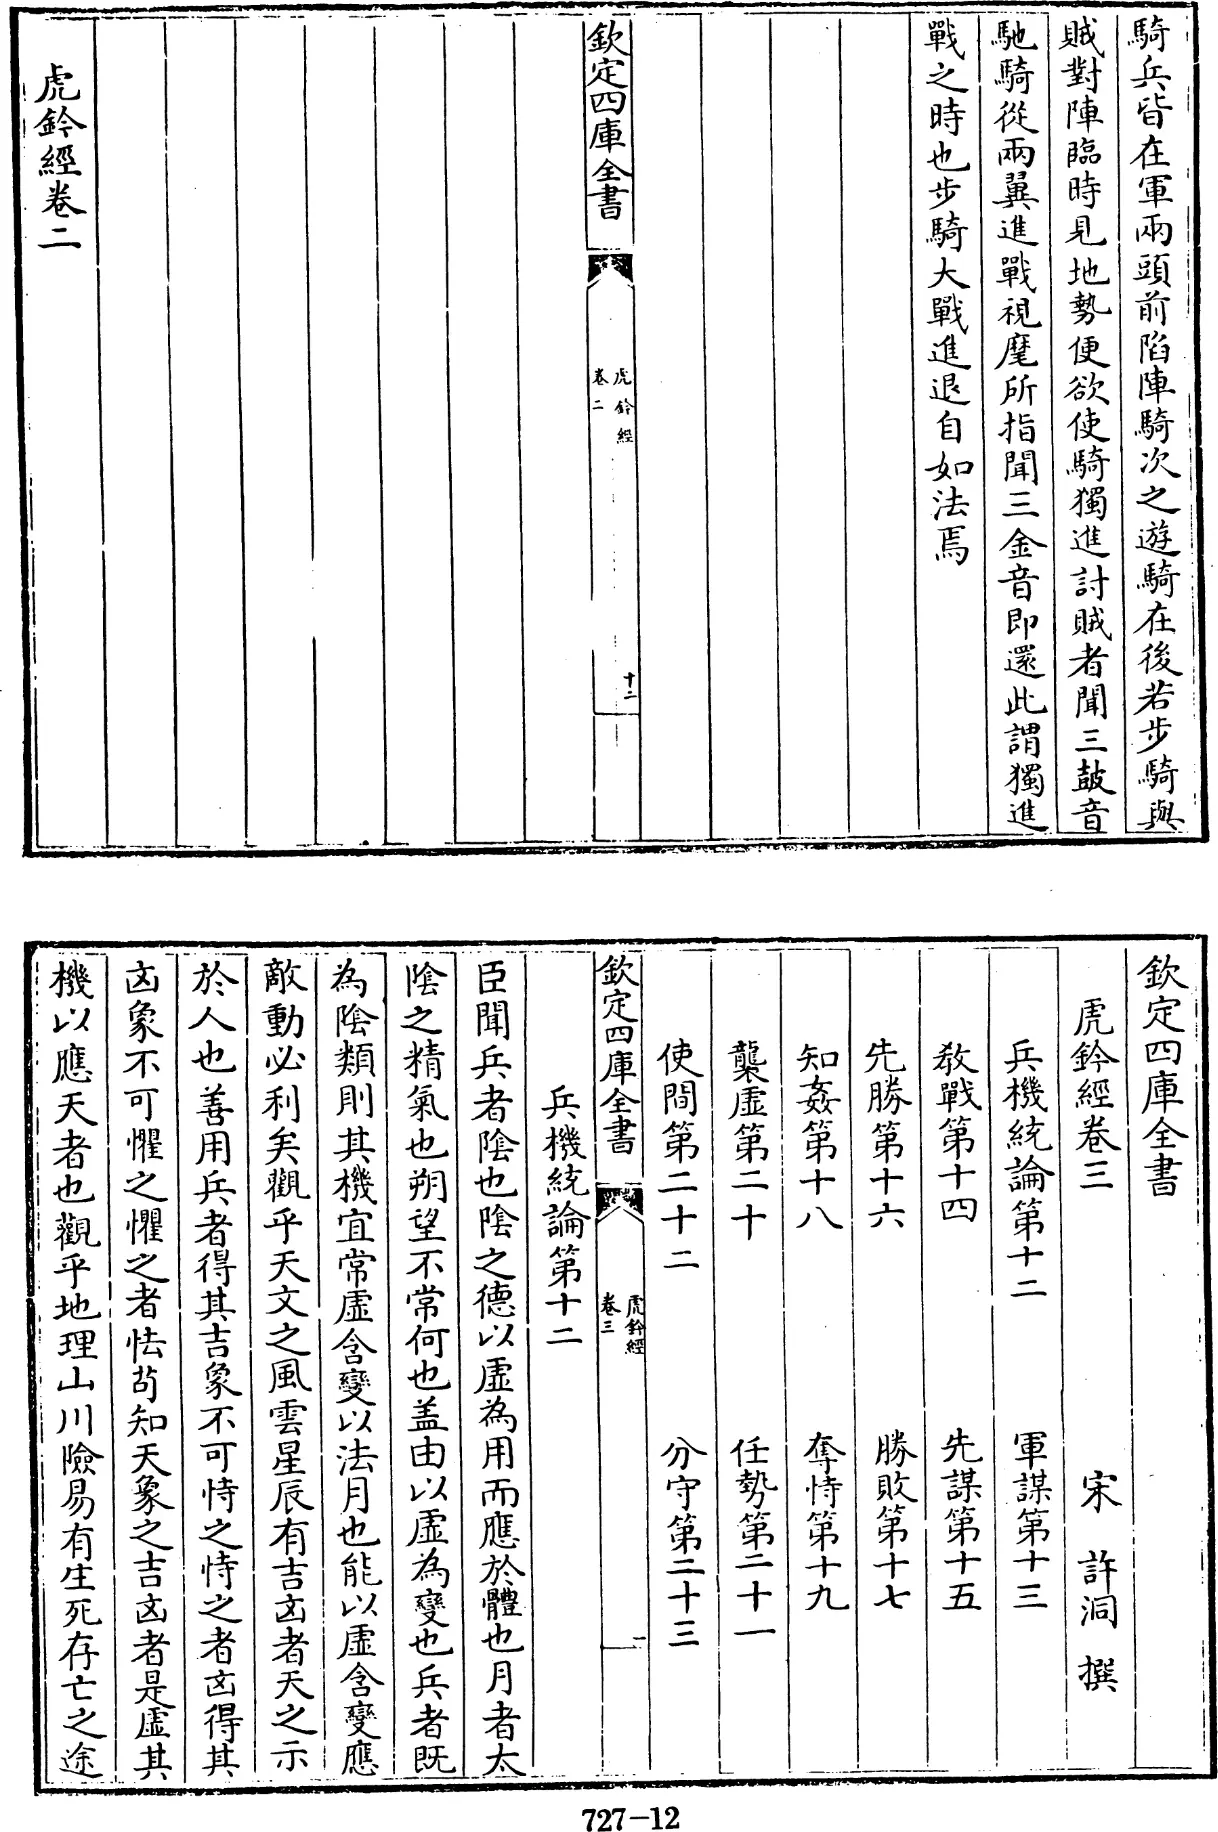 騎兵皆在軍兩頭前陷陣騎次之遊騎在後若步騎與
賊對陣臨時見地勢便欲使騎獨進討賊者聞三鼓音
馳騎從兩翼進戰視麾所指聞三金音即還此謂獨進
戰之時也步騎大戰進退自如法焉
欽定四庫全書
虎鈐經
卷二
十二
虎鈐經卷二
欽定四庫全書
虎鈐經卷三 宋 許洞 撰
兵機統論第十二 軍謀第十三
教戰第十四 先謀第十五
先勝第十六 勝敗第十七
知姦第十八 奪恃第十九
襲虛第二十 任勢第二十一
使間第二十二 分守第二十三
欽定四庫全書
虎鈐經
卷三
一
兵機統論第十二
臣聞兵者陰也陰之德以虛為用而應於體也月者太
陰之精氣也朔望不常何也盖由以虛為變也兵者既
為陰類則其機宜常虛含變以法月也能以虛含變應
敵動必利矣觀乎天文之風雲星辰有吉凶者天之示
於人也善用兵者得其吉象不可恃之恃之者凶得其
凶象不可懼之懼之者怯苟知天象之吉凶者是虛其
機以應天者也觀乎地理山川險易有生死存亡之途
727-12